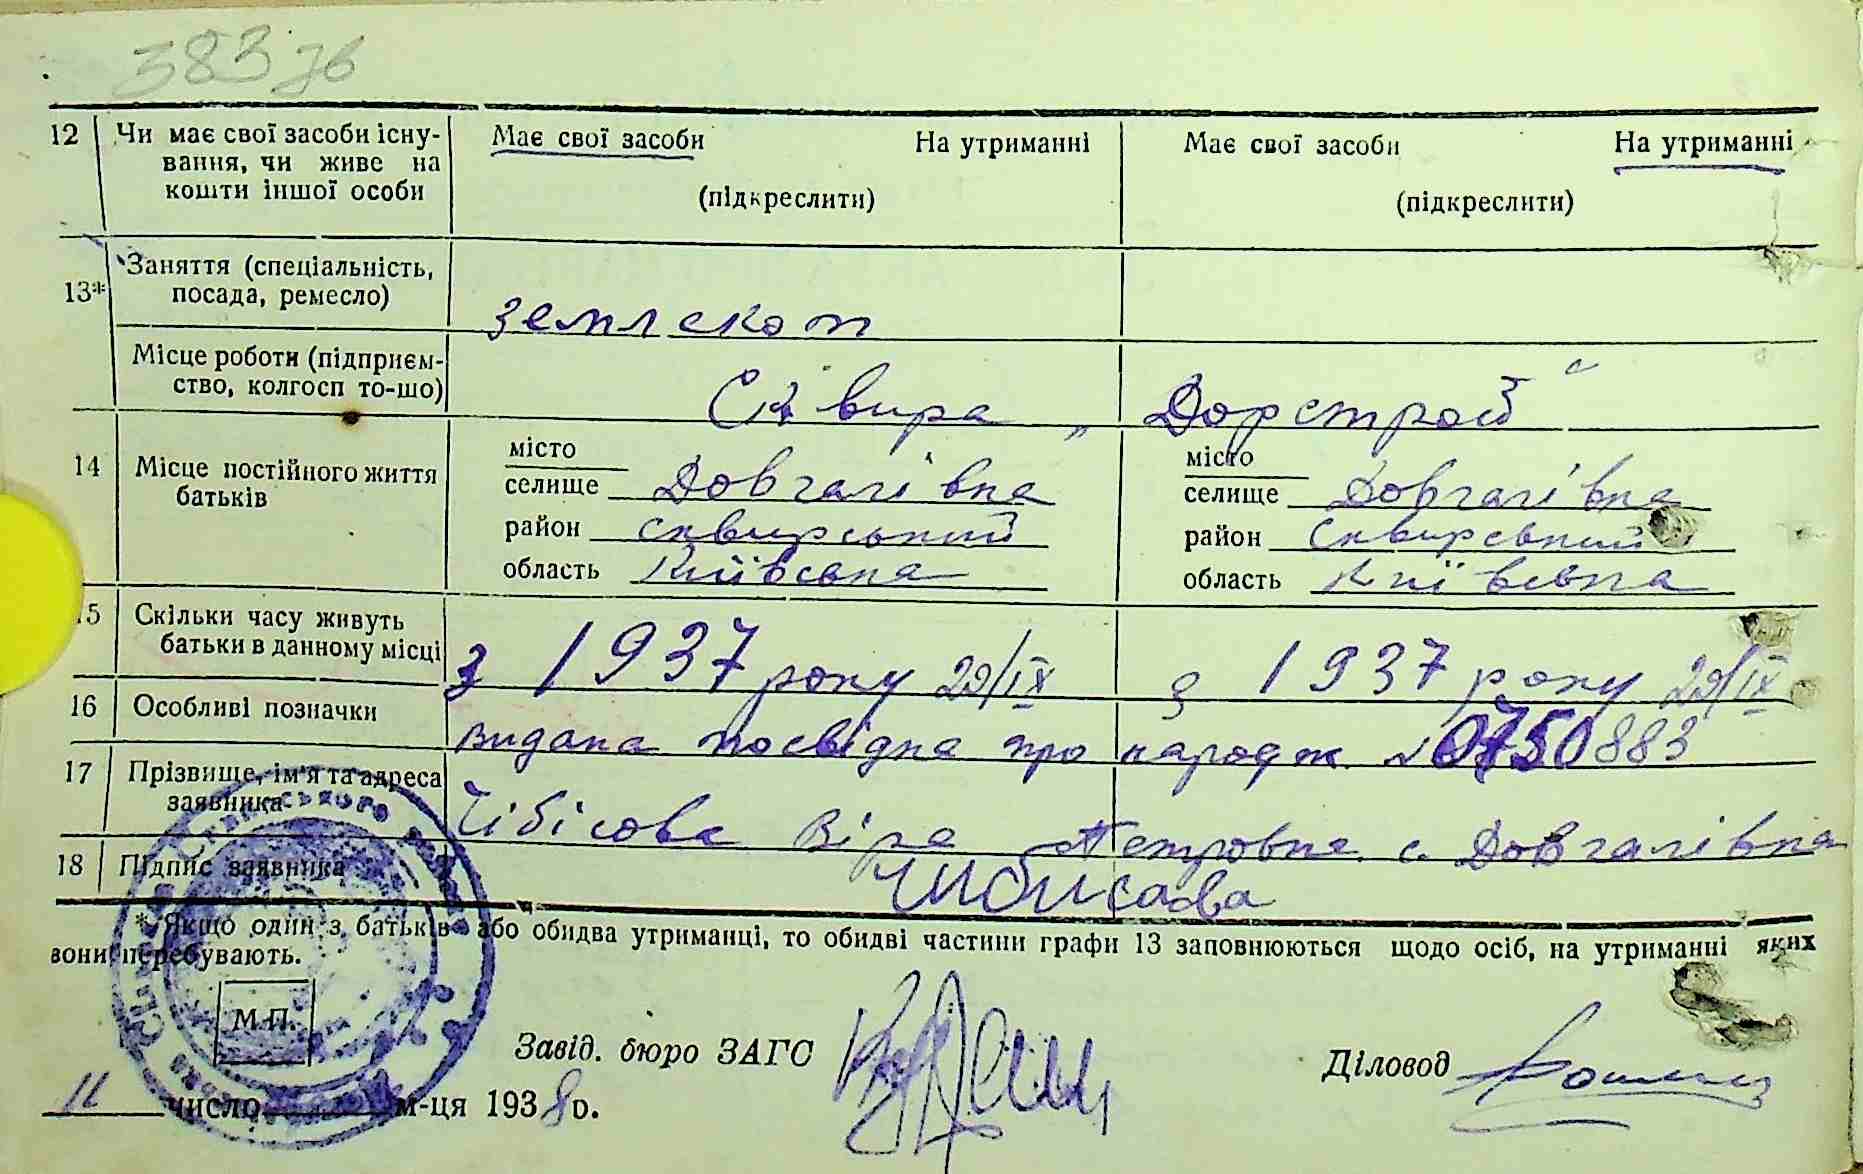 383 зв
12 Чи має свої засоби існу-
вання, чи живе на
кошти іншої особи
Має свої засоби На утриманні
(підкреслити)
Має свої засоби На утриманні
(підкреслити)
13* Заняття (спеціальність,
посада, ремесло)
землекоп
Місце роботи (підприєм-
ство, колгосп то-що)
Сквира „Дорстрой“
14 Місце постійного життя
батьків
місто
селище Довгалівка
район сквирський
область Київська
місто
селище Довгалівка
район Сквирський
область Київська
15 Скільки часу живуть
батьки в данному місці
з 1937 року 29/IX
з 1937 року 29/IX
16 Особливі позначки
видана посвідка про народж. 0750883
17 Прізвище, ім'я та адреса
заявника
Чібісова Віра Петровна с. Довгалівка
18 Підпис заявника
Чибисова
* Якщо один з батьків або обидва утриманці, то обидві частини графи 13 заповнюються щодо осіб, на утриманні яких
вони перебувають.
М.П.
Завід. бюро ЗАГС
Діловод
11 число м-ця 1938 р.